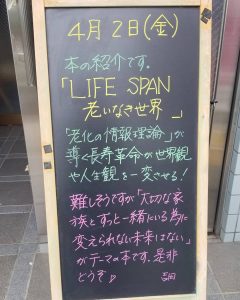 4月2日(金)
本の紹介です。
「LIFE SPAN
老いなき世界」
「老化の情報理論」が
導く長寿革命が世界観
や人生観を一変させる!
難しそうですが「大切な家
族とずっと一緒にいる為に
変えられない未来はない」
がテーマの本です。是非
どうぞ♡